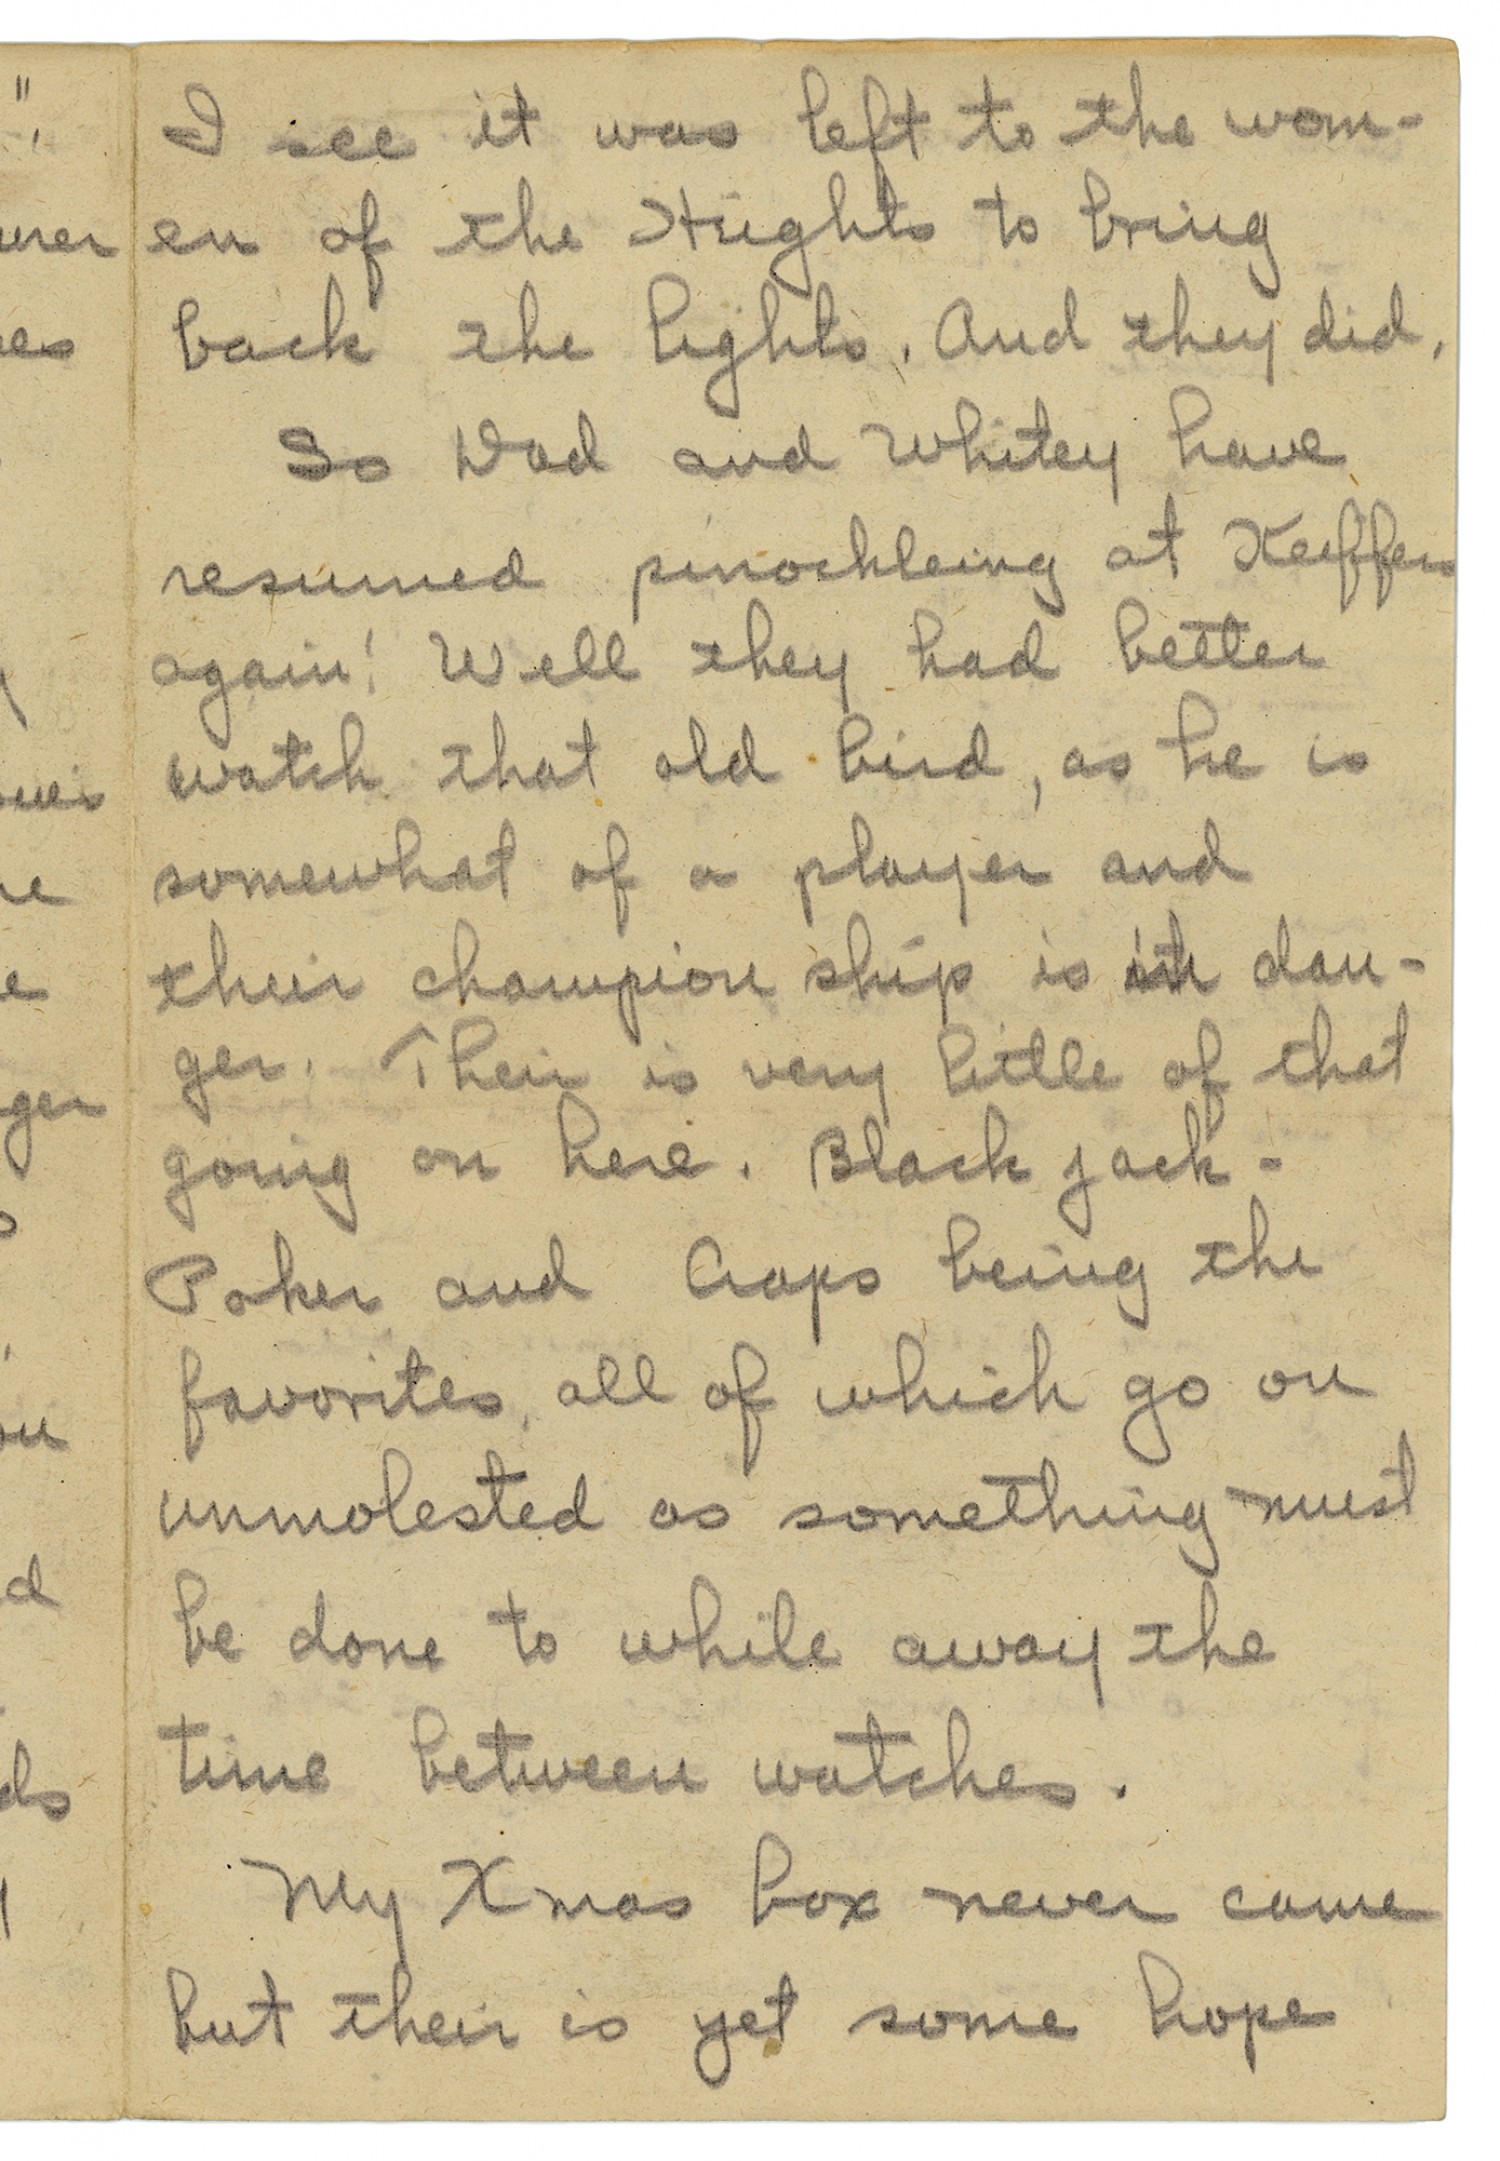 I see it was left to the wom-
en of the Heights to bring
back the lights. And they did.
So Dad and Whitey have
resumed pinochleing at Keiffers
again! Well they had better
watch that old bird, as he is
somewhat of a player and
their champion ship is in dan-
ger. Their is very little of that
going on here. Black jack -
Poker and Craps being the
favorites, all of which go on
unmolested as something must
be done to while away the
time between watches.
My Xmas box never came
but their is yet some hope